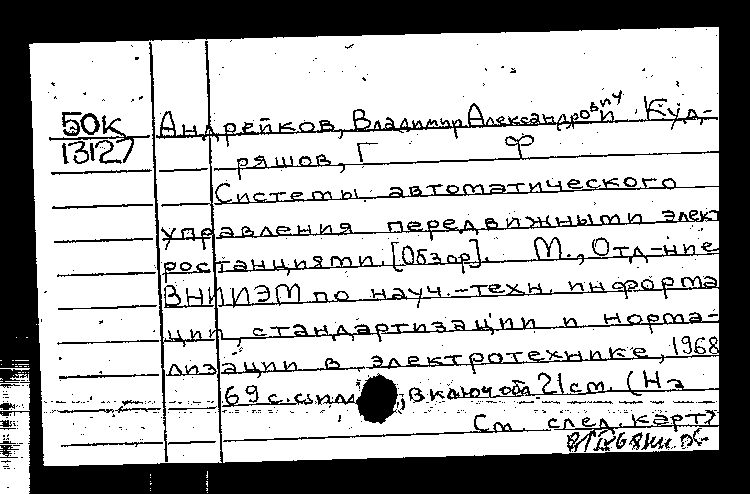 50К Андрейков, Владимир Александрович и Куд-
13127 ряшов, Г Ф
Системы автоматического
управления передвижными элект
ростанциями. [Обзор]. М., Отд-ние
ВНИИЭМ по науч.-техн. информа
ции, стандартизации и норма-
лизации в электротехнике, 1968
69 с. с илл , включ обл. 21 см. (На
См. след. карт)